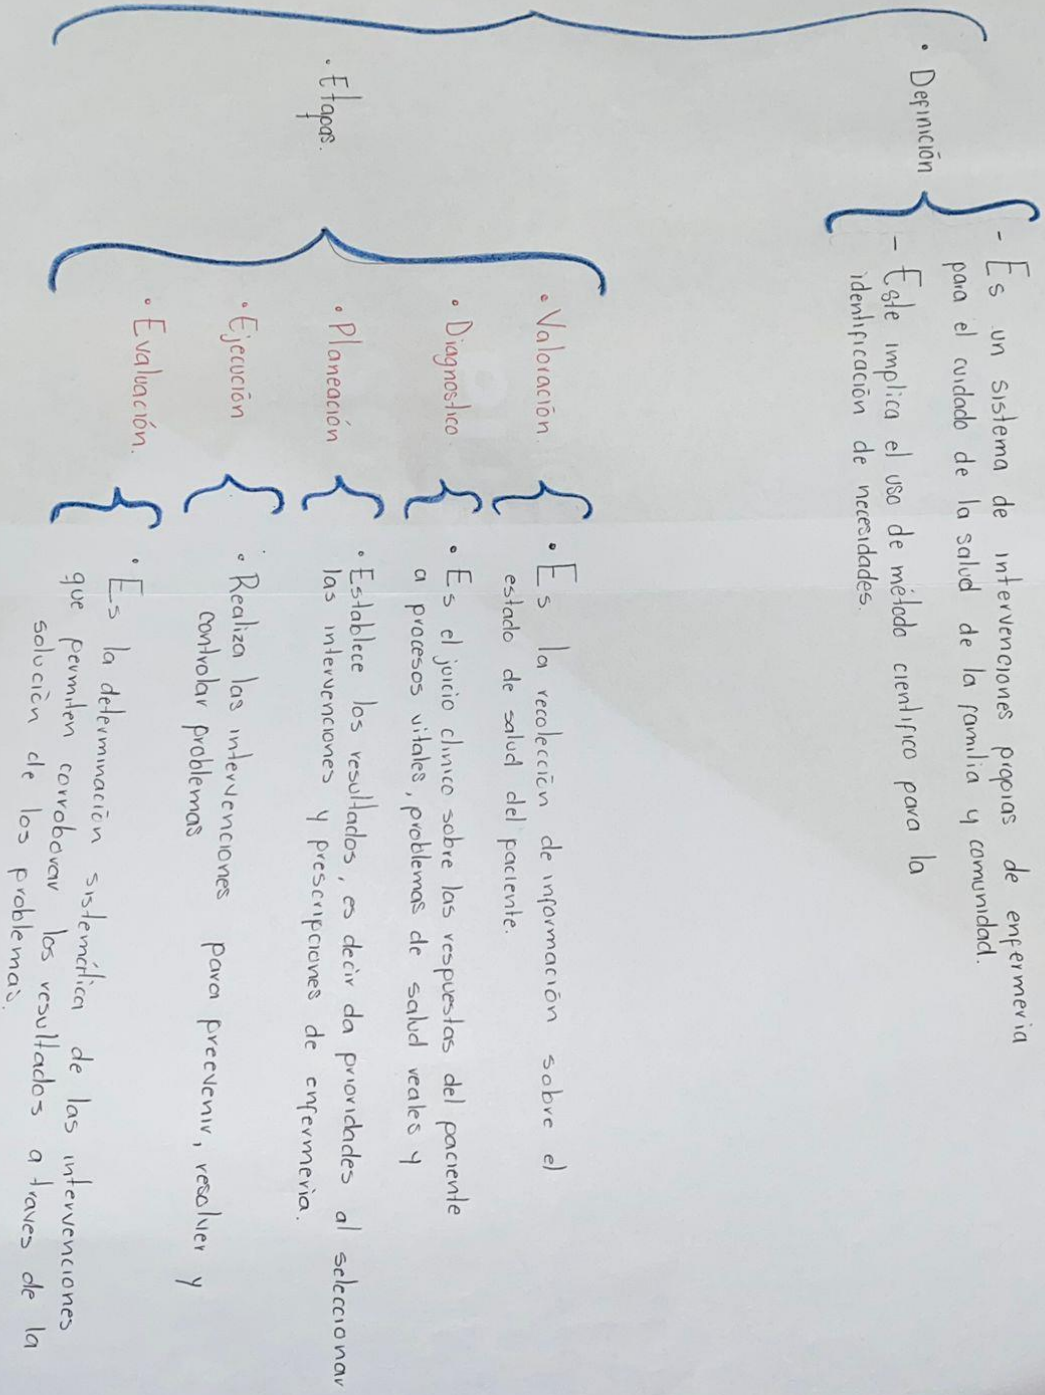 • Definición
- Es un sistema de intervenciones propias de enfermeria
para el cuidado de la salud de la familia y comunidad.
- Este implica el uso de método cientifico para la
identificación de necesidades.
• Etapas.
• Valoración.
• Es la recolección de información sobre el
estado de salud del paciente.
• Diagnostico
• Es el juicio clinico sobre las respuestas del paciente
a procesos vitales, problemas de salud reales y
• Planeación
• Establece los resultados, es decir da prioridades al seleccionar
las intervenciones y prescripciones de enfermeria.
• Ejecución
• Realiza las intervenciones para preevenir, resolver y
controlar problemas
• Evaluación.
• Es la determinación sistemática de las intervenciones
que permiten corroborar los resultados a traves de la
solución de los problemas.